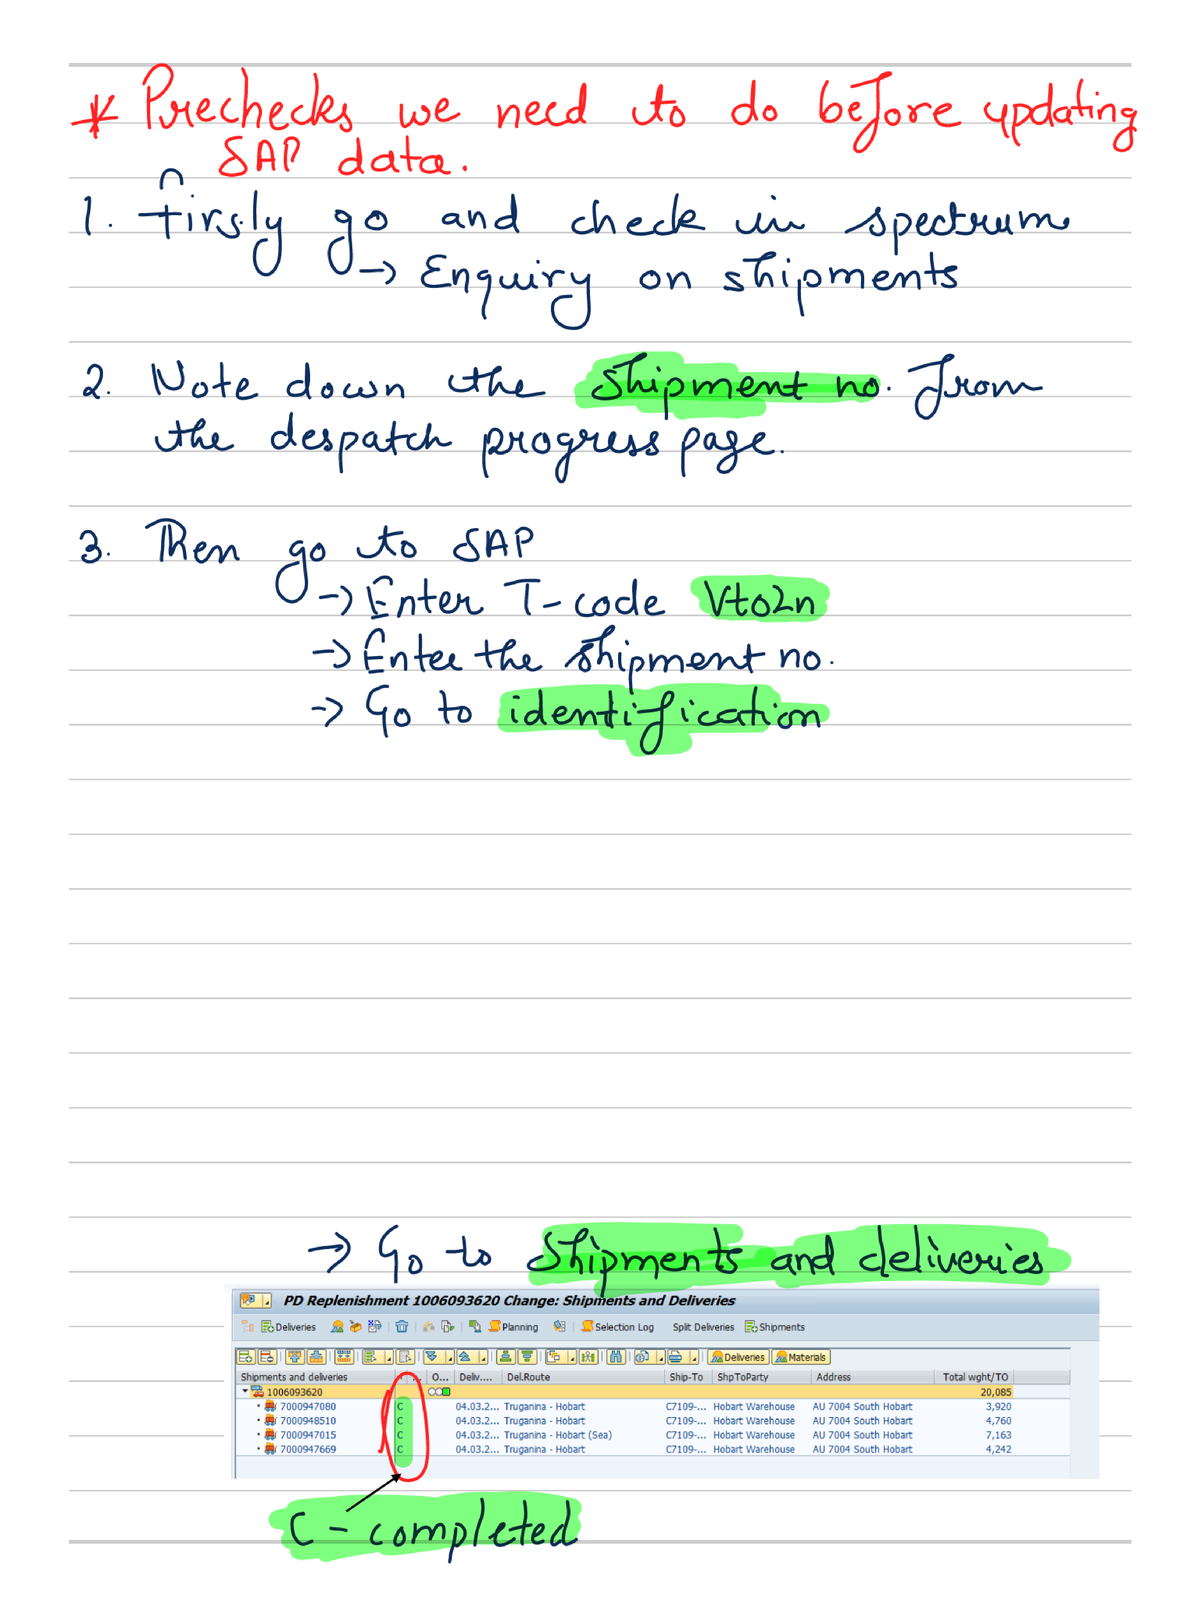 * Prechecks we need to do before updating
SAP data.
1. Firstly go and check in spectrum
→ Enquiry on shipments
2. Note down the shipment no. from
the despatch progress page.
3. Then go to SAP
→ Enter T-code Vto2n
→ Enter the shipment no.
→ Go to identification
→ Go to Shipments and deliveries
PD Replenishment 1006093620 Change: Shipments and Deliveries
Deliveries Planning Selection Log Split Deliveries Shipments
Deliveries Materials
Shipments and deliveries ... O... Deliv.... Del.Route Ship-To ShpToParty Address Total wght/TO
1006093620 20,085
7000947080 C 04.03.2... Truganina - Hobart C7109-... Hobart Warehouse AU 7004 South Hobart 3,920
7000948510 C 04.03.2... Truganina - Hobart C7109-... Hobart Warehouse AU 7004 South Hobart 4,760
7000947015 C 04.03.2... Truganina - Hobart (Sea) C7109-... Hobart Warehouse AU 7004 South Hobart 7,163
7000947669 C 04.03.2... Truganina - Hobart C7109-... Hobart Warehouse AU 7004 South Hobart 4,242
C - completed